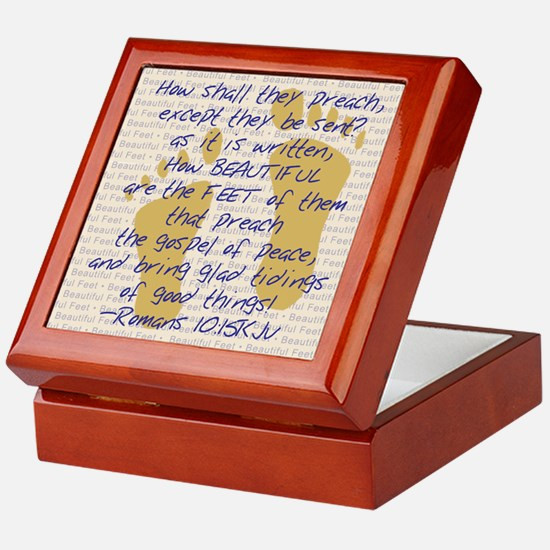 How shall they preach,
except they be sent?
as it is written,
How BEAUTIFUL
are the FEET of them
that preach
the gospel of peace,
and bring glad tidings
of good things!
-Romans 10:15KJV
Beautiful Feet • Beautiful Feet • Beautiful Feet